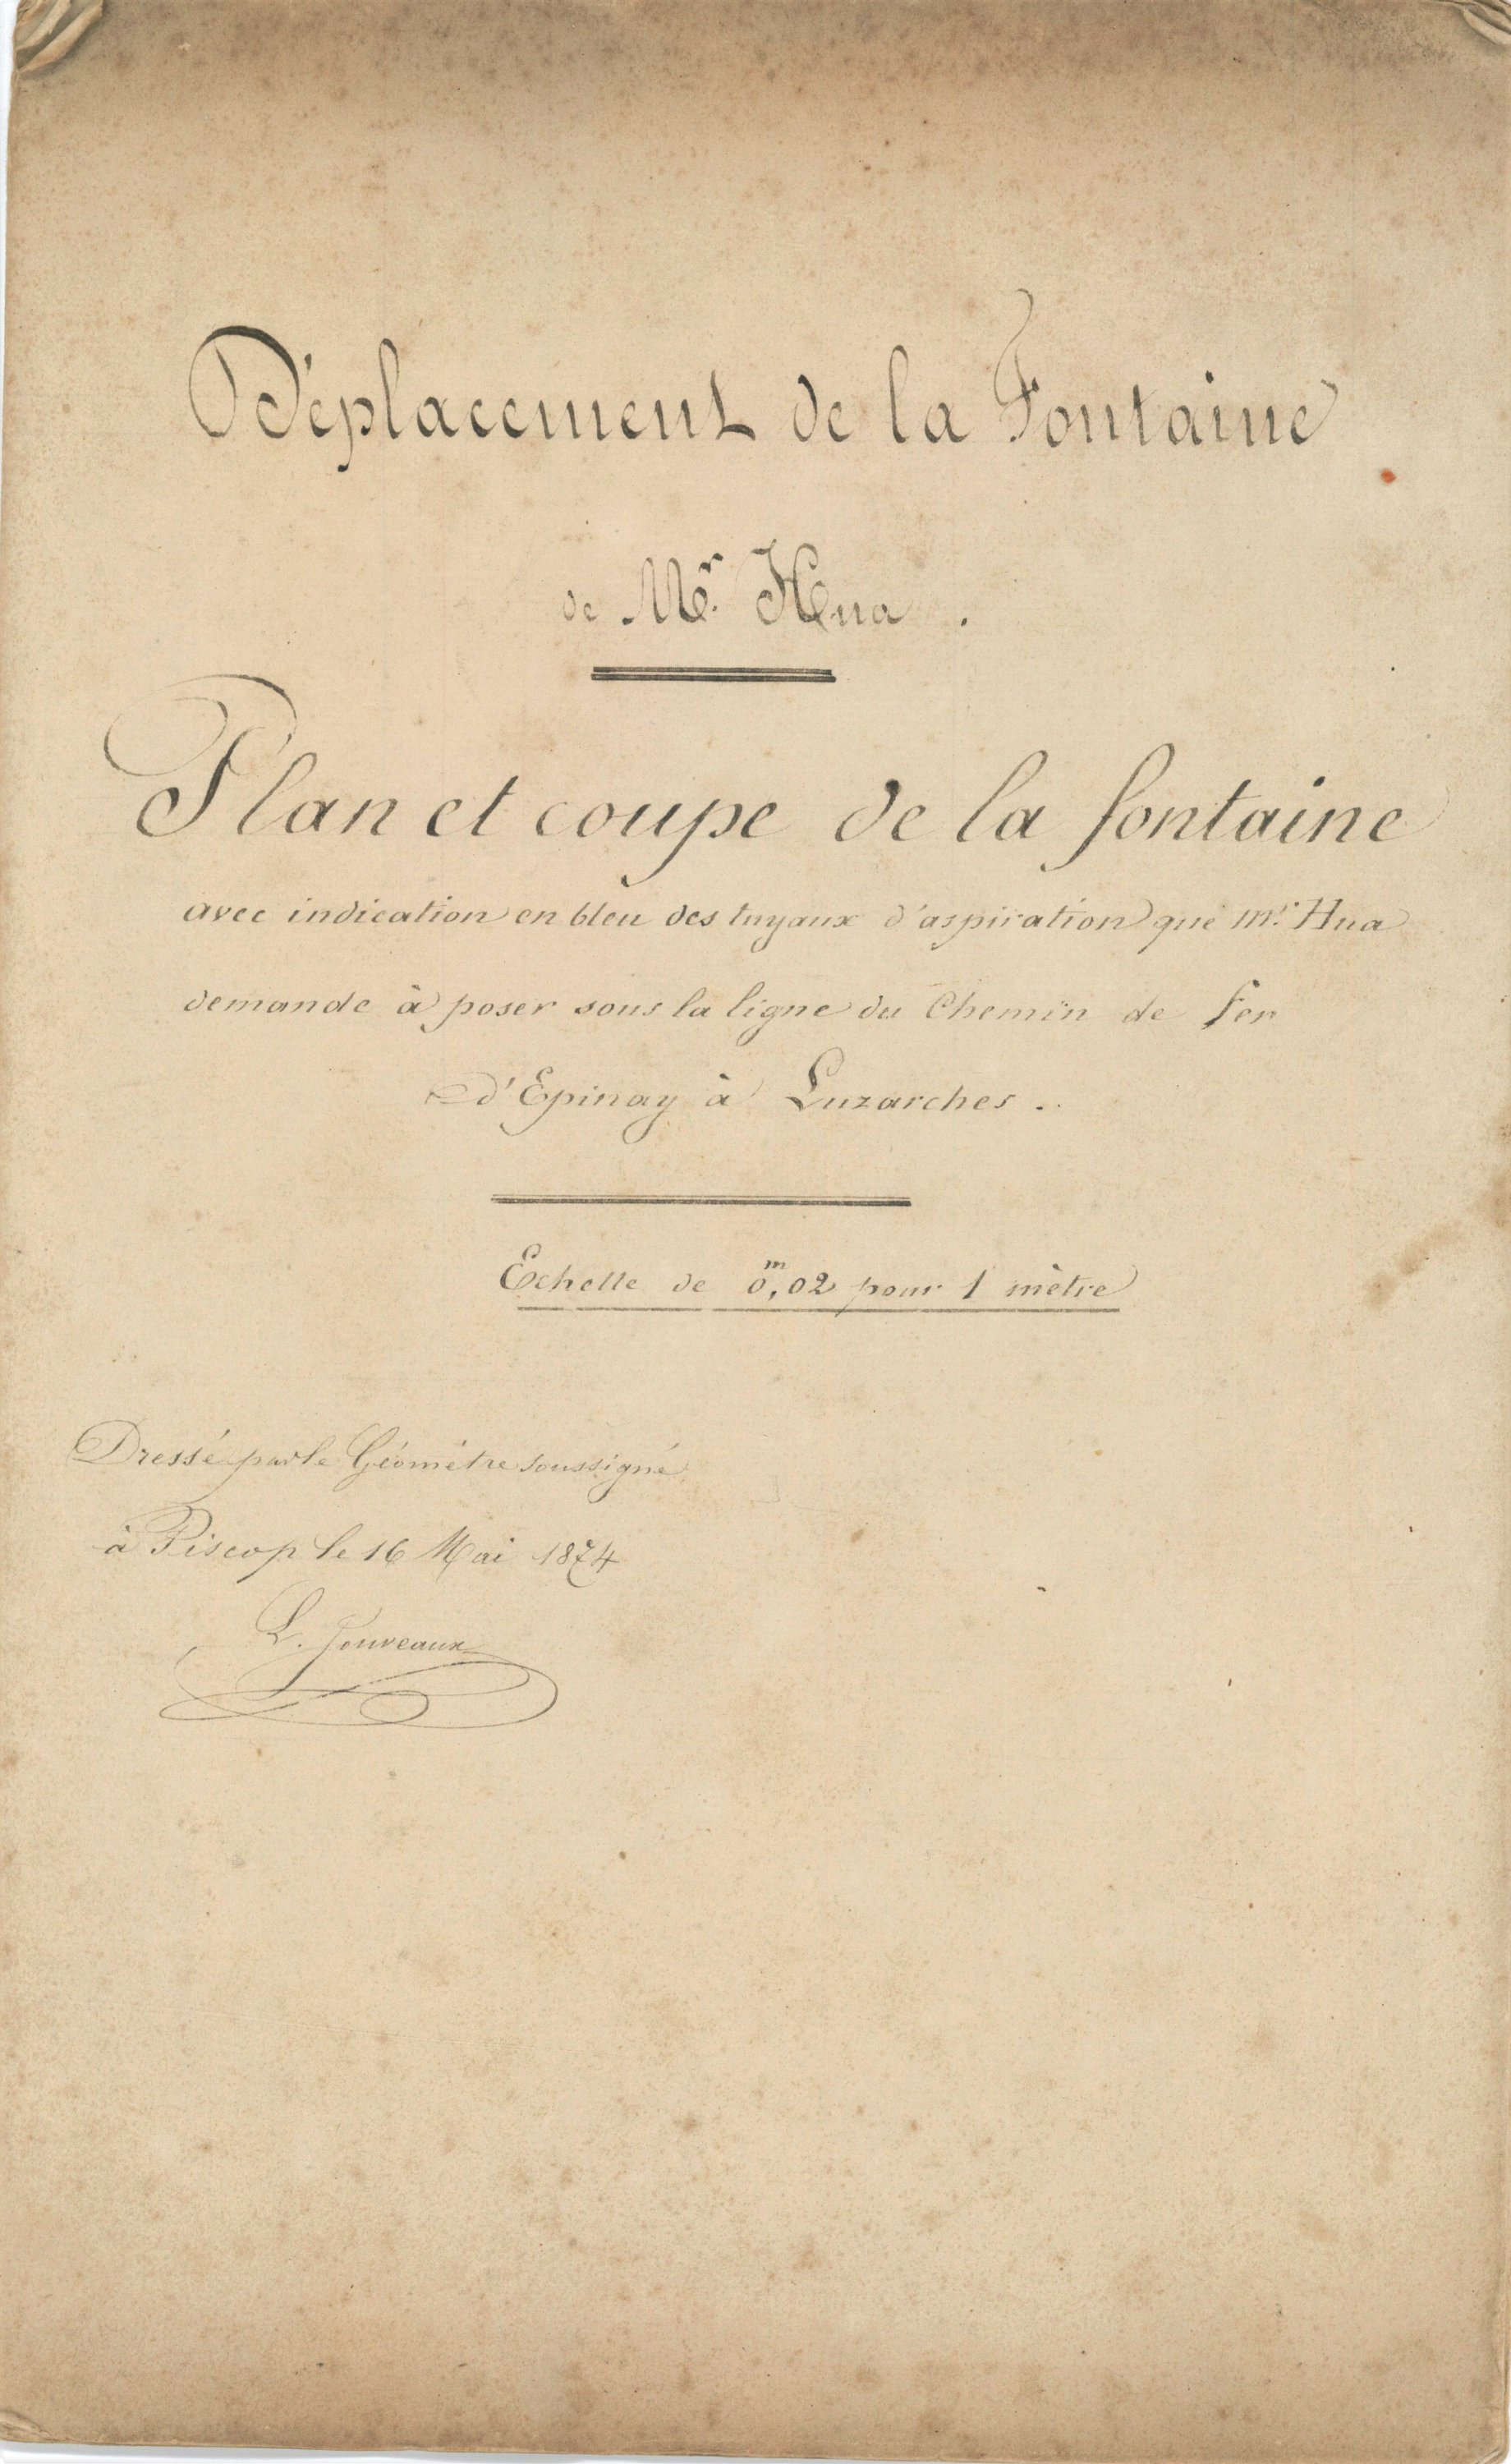 Déplacement de la Fontaine
de Mr. Hua.
Plan et coupe de la fontaine
avec indication en bleu des tuyaux d'aspiration que mr. Hua
demande à poser sous la ligne du Chemin de fer
d'Epinay à Luzarches.
Echelle de 0m,02 pour 1 mètre
Dressé par le Géomètre soussigné
à Piscop le 16 Mai 1874
L.